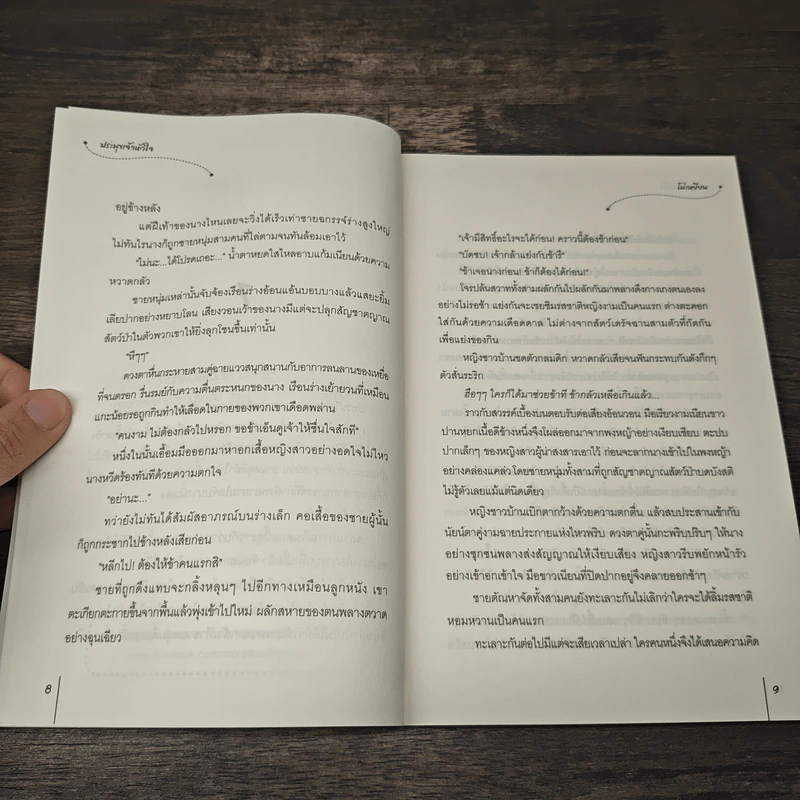 ประมุขเจ้าหัวใจ
อยู่ข้างหลัง
แต่ฝีเท้าของนางไหนเลยจะวิ่งได้เร็วเท่าชายฉกรรจ์ร่างสูงใหญ่
ไม่ทันไรนางก็ถูกชายหนุ่มสามคนที่ไล่ตามจนทันล้อมเอาไว้
"ไม่นะ...ได้โปรดเถอะ..." น้ำตาหยดใสไหลอาบแก้มเนียนด้วยความ
หวาดกลัว
ชายหนุ่มเหล่านั้นจับจ้องเรือนร่างอ้อนแอ้นบอบบางแล้วแสยะยิ้ม
เลียปากอย่างหยาบโลน เสียงวอนเว้าของนางมีแต่จะปลุกสัญชาตญาณ
สัตว์ป่าในตัวพวกเขาให้ยิ่งลุกโชนขึ้นเท่านั้น
"หึๆๆ"
ดวงตาหื่นกระหายสามคู่ฉายแววสนุกสนานกับอาการลนลานของเหยื่อ
ที่จนตรอก รื่นรมย์กับความตื่นตระหนกของนาง เรือนร่างเย้ายวนที่เหมือน
แกะน้อยรอถูกกินทำให้เลือดในกายของพวกเขาเดือดพล่าน
"คนงาม ไม่ต้องกลัวไปหรอก ขอข้าเอ็นดูเจ้าให้ชื่นใจสักที"
หนึ่งในนั้นเอื้อมมือออกมาหากอกเสื้อหญิงสาวอย่างอดใจไม่ไหว
นางหวีดร้องทันทีด้วยความตกใจ
"อย่านะ..."
ทว่ายังไม่ทันได้สัมผัสอาภรณ์บนร่างเล็ก คอเสื้อของชายผู้นั้น
ก็ถูกกระชากไปข้างหลังเสียก่อน
"หลีกไป! ต้องให้ข้าคนแรกสิ"
ชายที่ถูกดึงแทบจะกลิ้งหลุนๆ ไปอีกทางเหมือนลูกหนัง เขา
ตะเกียกตะกายขึ้นจากพื้นแล้วพุ่งเข้าไปใหม่ ผลักสหายของตนพลางตวาด
อย่างฉุนเฉียว
8
โม่เหยียน
"เจ้ามีสิทธิ์อะไรจะได้ก่อน! คราวนี้ต้องข้าก่อน"
"บัดซบ! เจ้ากล้าแย่งกับข้ารึ"
"ข้าเจอนางก่อน! ข้าก็ต้องได้ก่อน!"
โจรปล้นสวาททั้งสามผลักกันไปผลักกันมาพลางดึงกางเกงตนเองลง
อย่างไม่รอช้า แย่งกันจะเชยชิมรสชาติหญิงงามเป็นคนแรก ต่างตะคอก
ใส่กันด้วยความเดือดดาล ไม่ต่างจากสัตว์เดรัจฉานสามตัวที่กัดกัน
เพื่อแย่งของกิน
หญิงชาวบ้านขดตัวกลมดิก หวาดกลัวเสียจนฟันกระทบกันดังกึกๆ
ตัวสั่นระริก
ฮือๆๆ ใครก็ได้มาช่วยข้าที ข้ากลัวเหลือเกินแล้ว...
ราวกับสวรรค์เบื้องบนตอบรับต่อเสียงอ้อนวอน มือเรียวงามเนียนขาว
ปานหยกเนื้อดีข้างหนึ่งจึงโผล่ออกมาจากพงหญ้าอย่างเงียบเชียบ ตะปบ
ปากเล็กๆ ของหญิงสาวผู้น่าสงสารเอาไว้ ก่อนจะลากนางเข้าไปในพงหญ้า
อย่างคล่องแคล่ว โดยชายหนุ่มทั้งสามที่ถูกสัญชาตญาณสัตว์ป่าบดบังสติ
ไม่รู้ตัวเลยแม้แต่นิดเดียว
หญิงชาวบ้านเบิกตากว้างด้วยความตกตื่น แล้วสบประสานเข้ากับ
นัยน์ตาคู่งามฉายประกายแห่งไหวพริบ ดวงตาคู่นั้นกะพริบปริบๆ ให้นาง
อย่างซุกซนพลางส่งสัญญาณให้เงียบเสียง หญิงสาวรีบพยักหน้ารัว
อย่างเข้าอกเข้าใจ มือขาวเนียนที่ปิดปากอยู่จึงคลายออกช้าๆ
ชายตัณหาจัดทั้งสามคนยังทะเลาะกันไม่เลิกว่าใครจะได้ลิ้มรสชาติ
หอมหวานเป็นคนแรก
ทะเลาะกันต่อไปมีแต่จะเสียเวลาเปล่า ใครคนหนึ่งจึงได้เสนอความคิด
9